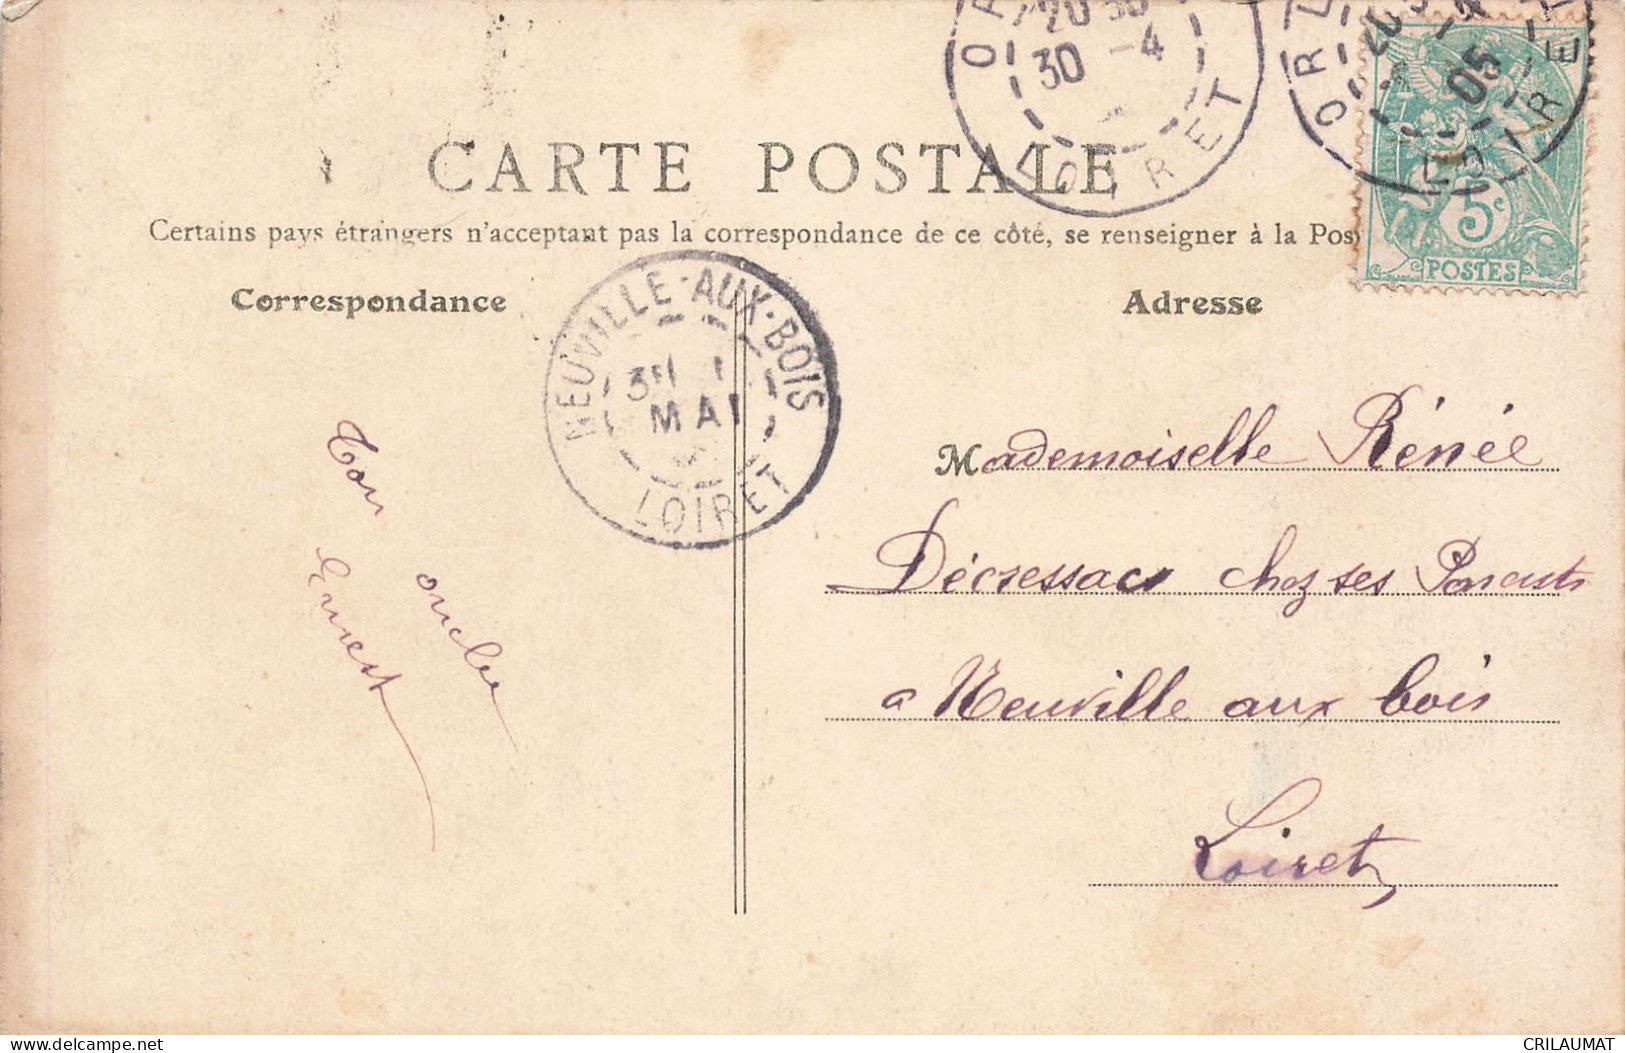 CARTE POSTALE
Certains pays étrangers n'acceptant pas la correspondance de ce côté, se renseigner à la Pos
Correspondance
Adresse
NEUVILLE-AUX-BOIS
MAI
LOIRET
20 30
30 -4
LOIRET
05
LOIRET
5c
POSTES
Ton oncle
Ernest
Mademoiselle Rénée
Décressac chez ses Parents
a Neuville aux bois
Loiret
delcampe.net
CRILAUMAT